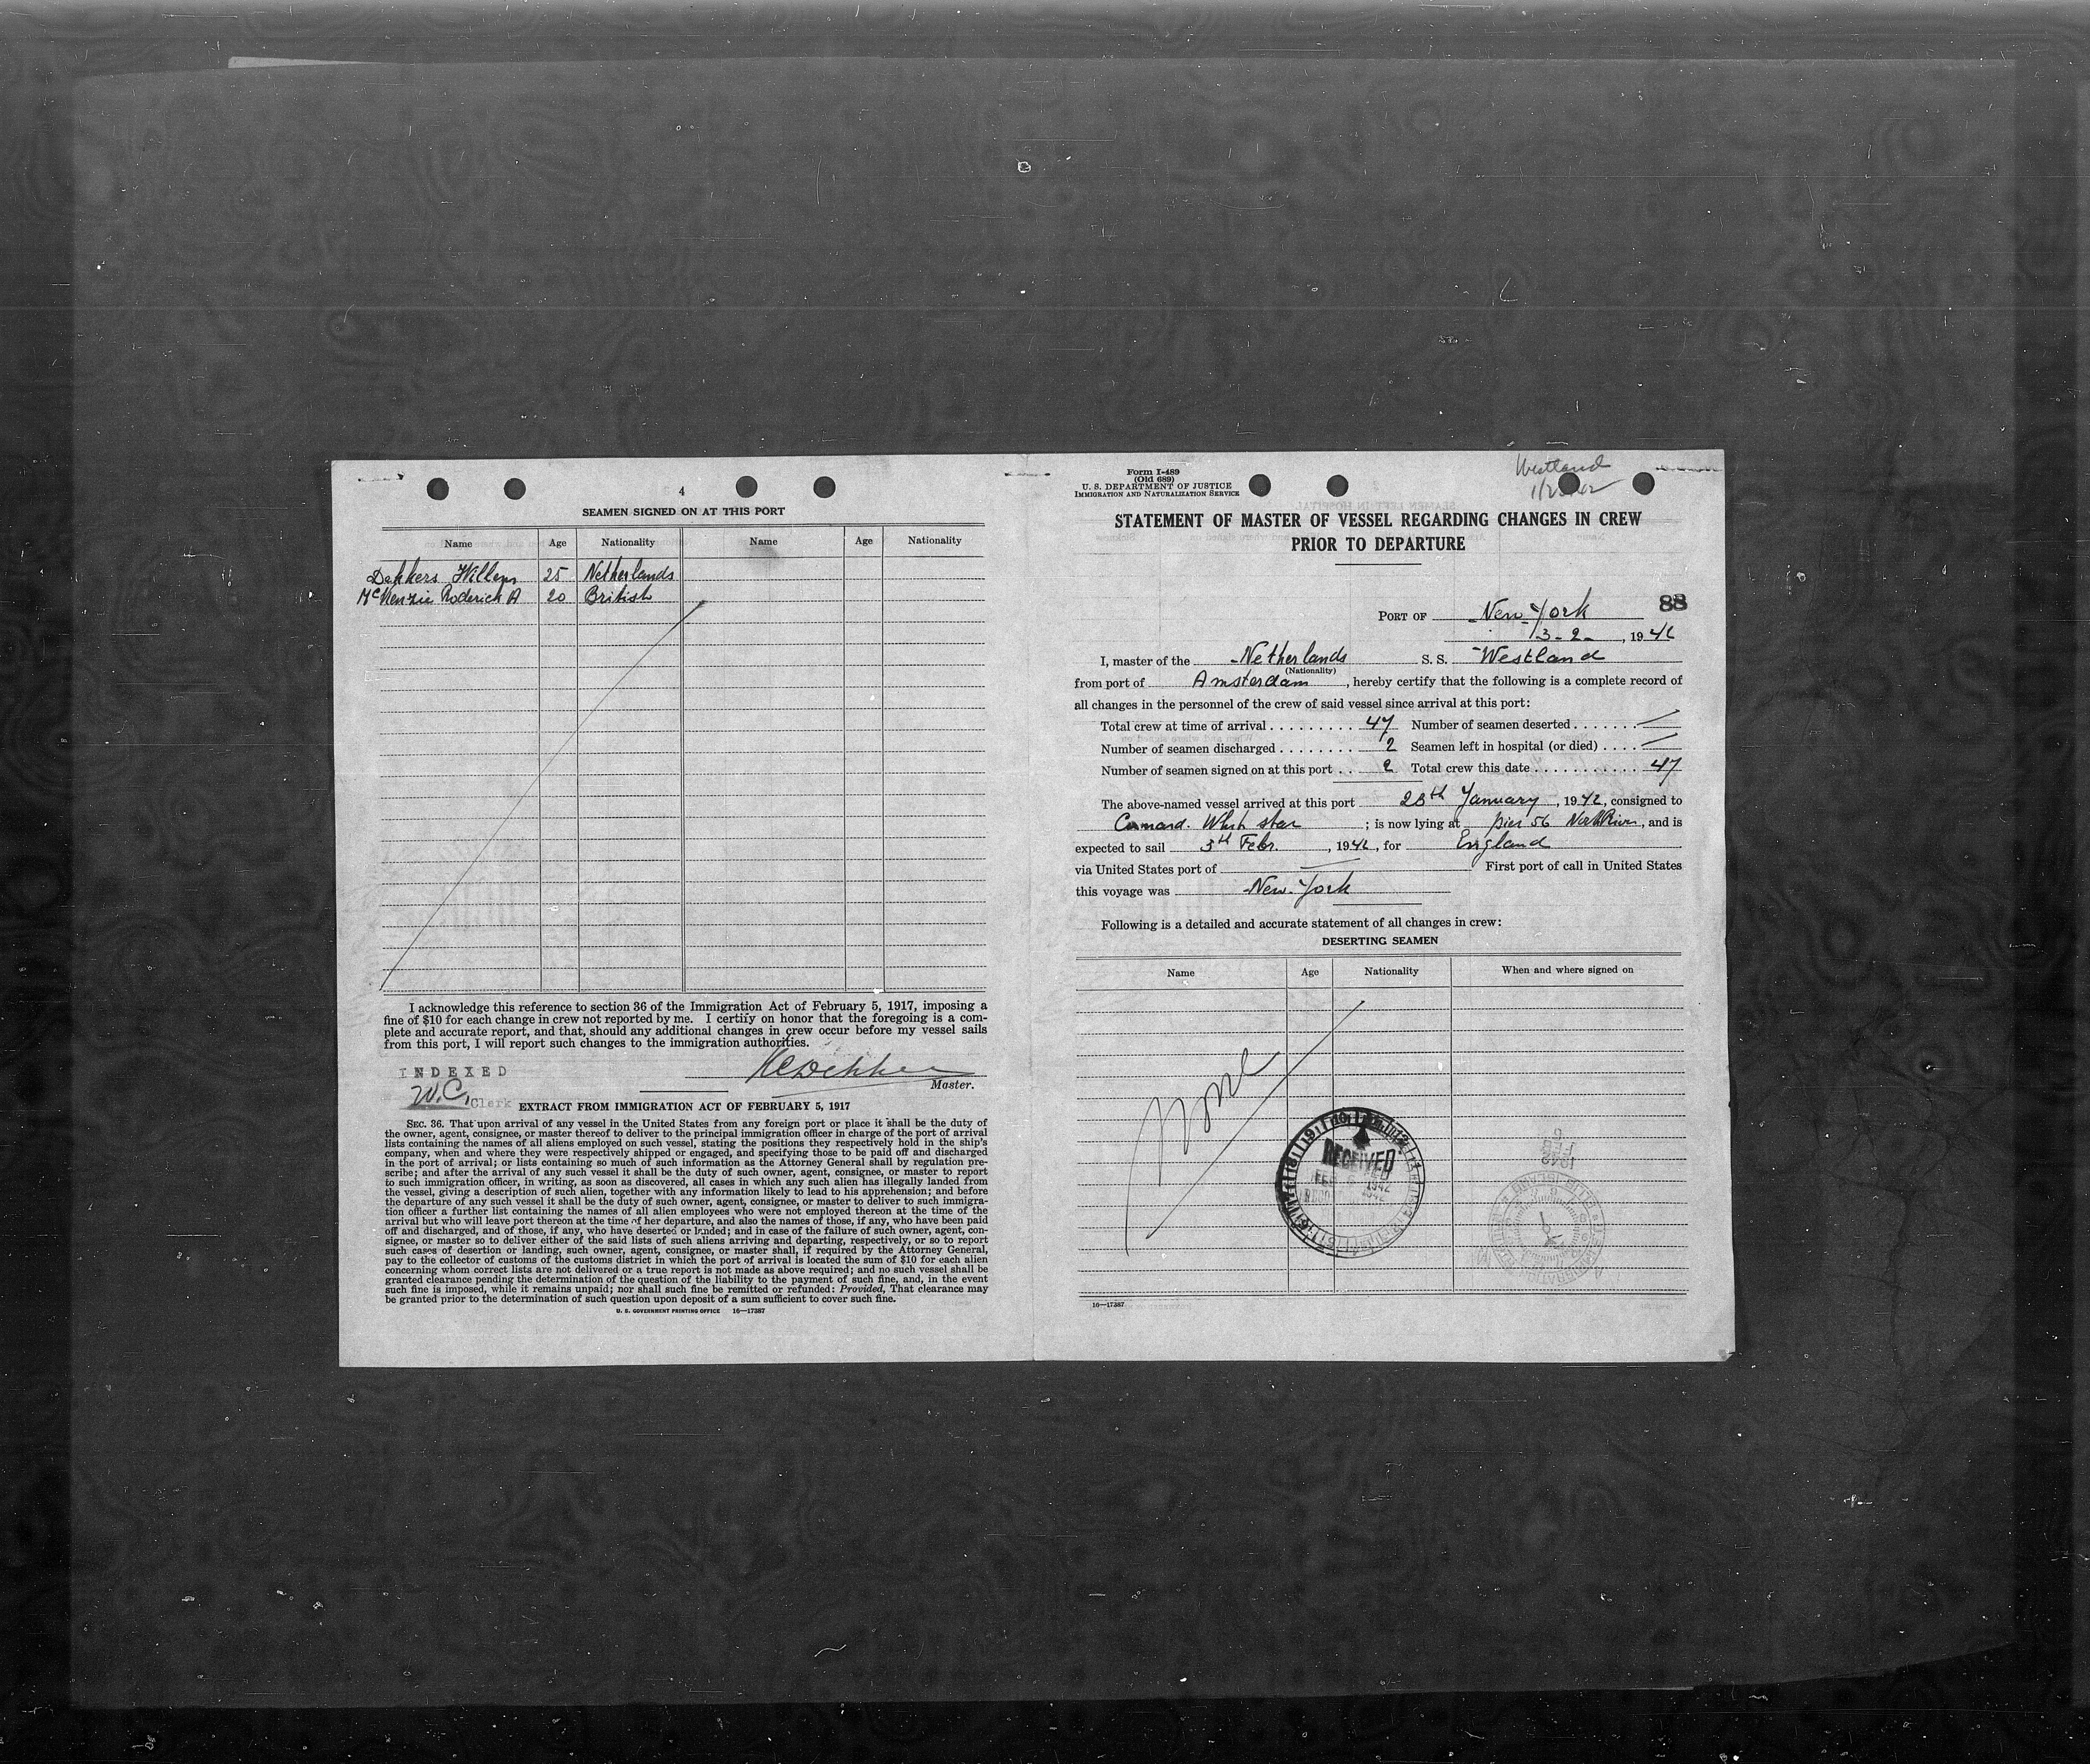 4
SEAMEN SIGNED ON AT THIS PORT
Name Age Nationality Name Age Nationality
Dekkers Willem 25 Netherlands
McKenzie Roderick A 20 British
I acknowledge this reference to section 36 of the Immigration Act of February 5, 1917, imposing a
fine of $10 for each change in crew not reported by me. I certify on honor that the foregoing is a com-
plete and accurate report, and that, should any additional changes in crew occur before my vessel sails
from this port, I will report such changes to the immigration authorities.
Master.
INDEXED
W.C. Clerk
EXTRACT FROM IMMIGRATION ACT OF FEBRUARY 5, 1917
SEC. 36. That upon arrival of any vessel in the United States from any foreign port or place it shall be the duty of
the owner, agent, consignee, or master thereof to deliver to the principal immigration officer in charge of the port of arrival
lists containing the names of all aliens employed on such vessel, stating the positions they respectively hold in the ship's
company, when and where they were respectively shipped or engaged, and specifying those to be paid off and discharged
in the port of arrival; or lists containing so much of such information as the Attorney General shall by regulation pre-
scribe; and after the arrival of any such vessel it shall be the duty of such owner, agent, consignee, or master to report
to such immigration officer, in writing, as soon as discovered, all cases in which any such alien has illegally landed from
the vessel, giving a description of such alien, together with any information likely to lead to his apprehension; and before
the departure of any such vessel it shall be the duty of such owner, agent, consignee, or master to deliver to such immigra-
tion officer a further list containing the names of all alien employees who were not employed thereon at the time of the
arrival but who will leave port thereon at the time of her departure, and also the names of those, if any, who have been paid
off and discharged, and of those, if any, who have deserted or landed; and in case of the failure of such owner, agent, con-
signee, or master so to deliver either of the said lists of such aliens arriving and departing, respectively, or so to report
such cases of desertion or landing, such owner, agent, consignee, or master shall, if required by the Attorney General,
pay to the collector of customs of the customs district in which the port of arrival is located the sum of $10 for each alien
concerning whom correct lists are not delivered or a true report is not made as above required; and no such vessel shall be
granted clearance pending the determination of the question of the liability to the payment of such fine, and, in the event
such fine is imposed, while it remains unpaid; nor shall such fine be remitted or refunded: Provided, That clearance may
be granted prior to the determination of such question upon deposit of a sum sufficient to cover such fine.
U. S. GOVERNMENT PRINTING OFFICE 16—17387
Form I-489
(Old 689)
U. S. DEPARTMENT OF JUSTICE
IMMIGRATION AND NATURALIZATION SERVICE
Westland
STATEMENT OF MASTER OF VESSEL REGARDING CHANGES IN CREW
PRIOR TO DEPARTURE
88
PORT OF New-York
3-2-, 1942
I, master of the Netherlands S. S. Westland
(Nationality)
from port of Amsterdam, hereby certify that the following is a complete record of
all changes in the personnel of the crew of said vessel since arrival at this port:
Total crew at time of arrival 47 Number of seamen deserted —
Number of seamen discharged 2 Seamen left in hospital (or died) —
Number of seamen signed on at this port 2 Total crew this date 47
The above-named vessel arrived at this port 28th January, 1942, consigned to
Cunard. White star; is now lying at pier 56 North River, and is
expected to sail 3th Febr., 1942, for England
via United States port of — First port of call in United States
this voyage was New-York
Following is a detailed and accurate statement of all changes in crew:
DESERTING SEAMEN
Name Age Nationality When and where signed on
None
RECEIVED
FEB 6 1942
16—17387